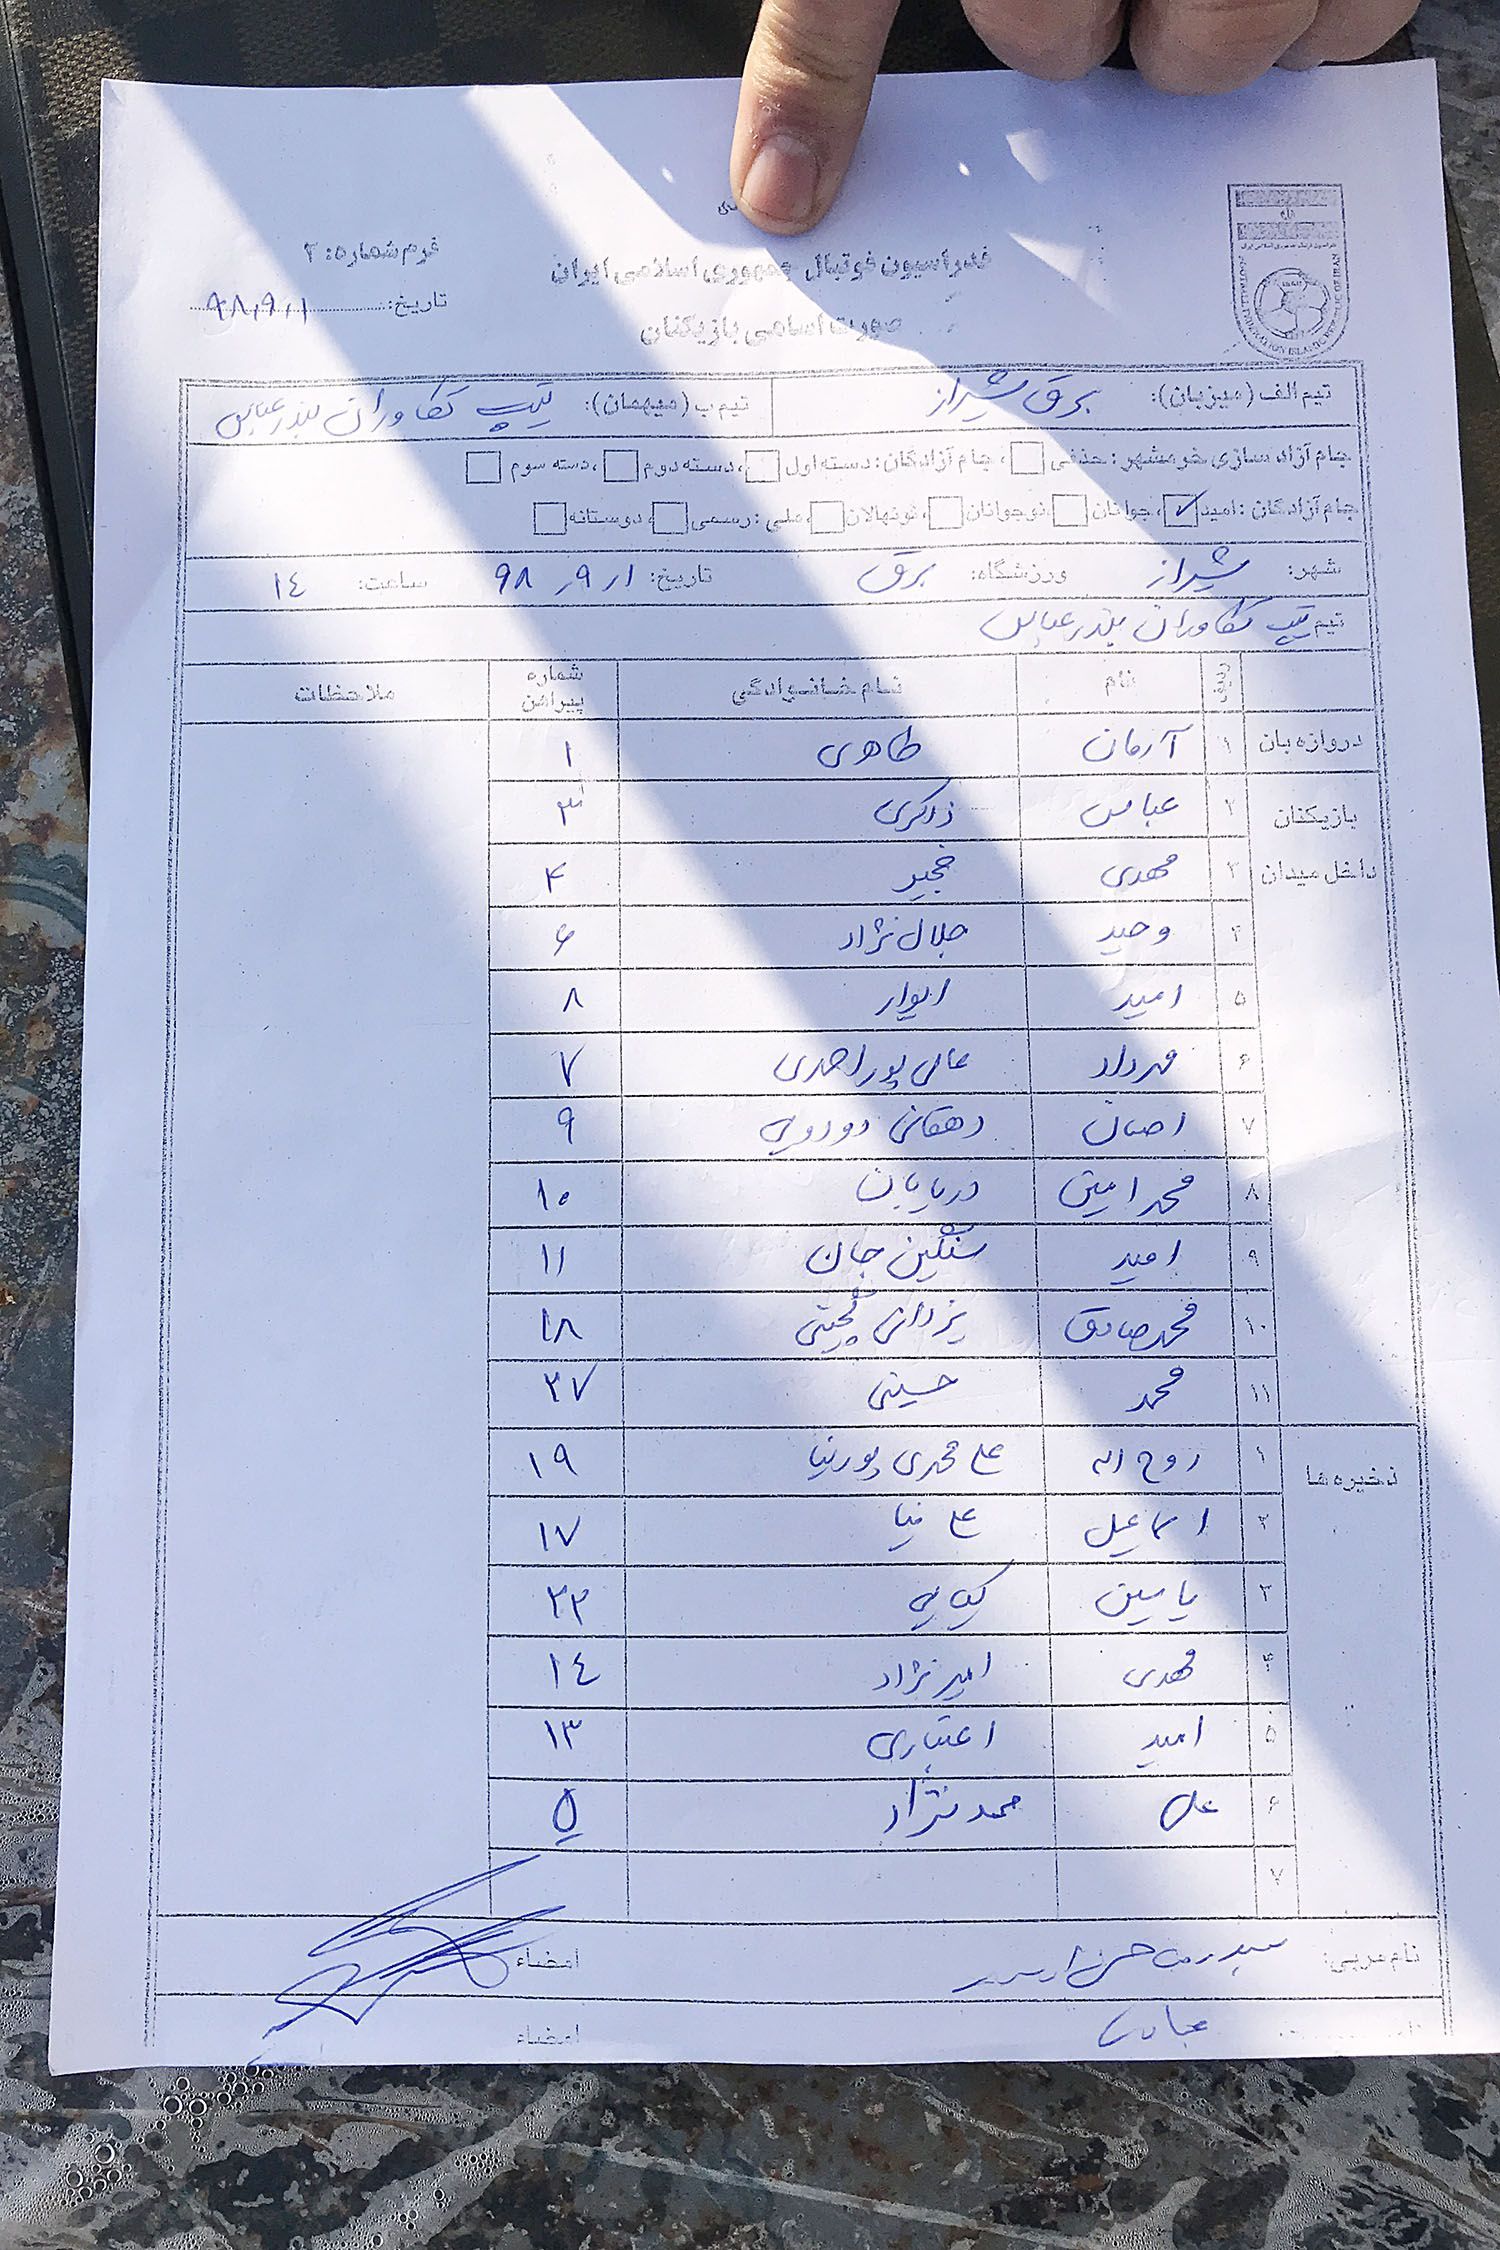 فدراسیون فوتبال جمهوری اسلامی ایران
فرم شماره: ۲
صورت اسامی بازیکنان
تاریخ: ۹۸,۹,۱
FOOTBALL FEDERATION ISLAMIC REPUBLIC OF IRAN
تیم الف (میزبان): برق شیراز تیم ب (میهمان): تیپ تکاوران بندرعباس
جام آزاد سازی خرمشهر: حذفی □، جام آزادگان: دسته اول □، دسته دوم □، دسته سوم □
جام آزادگان: امید ☑، جوانان □، نوجوانان □، نونهالان □، ملی: رسمی □، دوستانه □
شهر: شیراز ورزشگاه: برق تاریخ: ۹۸,۹,۱ ساعت: ۱٤
تیم تیپ تکاوران بندرعباس
ردیف نام نام خانوادگی شماره پیراهن ملاحظات
دروازه بان ۱ آرمان طاهری ۱
بازیکنان ۲ عباس ذاکری ۳
داخل میدان ۳ مهدی خجیر ۴
۴ وحید جلال نژاد ۶
۵ امید ایوار ۸
۶ مهرداد عالی پور احمدی ۷
۷ احسان دهقانی دورویی ۹
۸ محمد امین دریابان ۱۰
۹ امید سنگین جان ۱۱
۱۰ محمدصادق یزدانی ۱۸
۱۱ محمد حسینی ۲۷
ذخیره ها ۱ روح اله علی محمدی پورنیا ۱۹
۲ اسماعیل علی نیا ۱۷
۳ یاسین ۲۳
۴ مهدی امیرنژاد ۱٤
۵ امید اعتباری ۱۳
۶ علی محمدنژاد ۵
۷
نام مربی: امضاء
امضاء